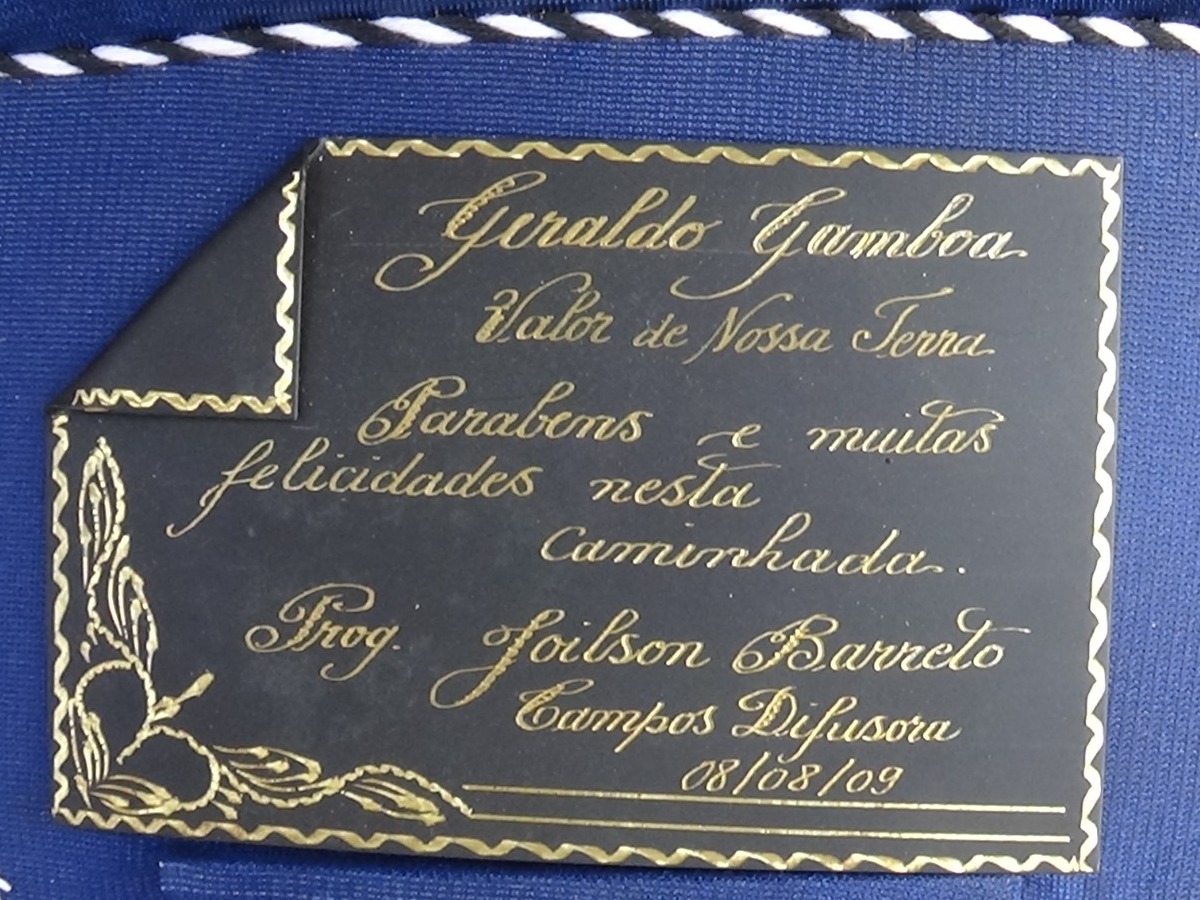 Geraldo Gamboa
Valor de Nossa Terra
Parabens e muitas
felicidades nesta
caminhada.
Prog. Joilson Barreto
Campos Difusora
08/08/09